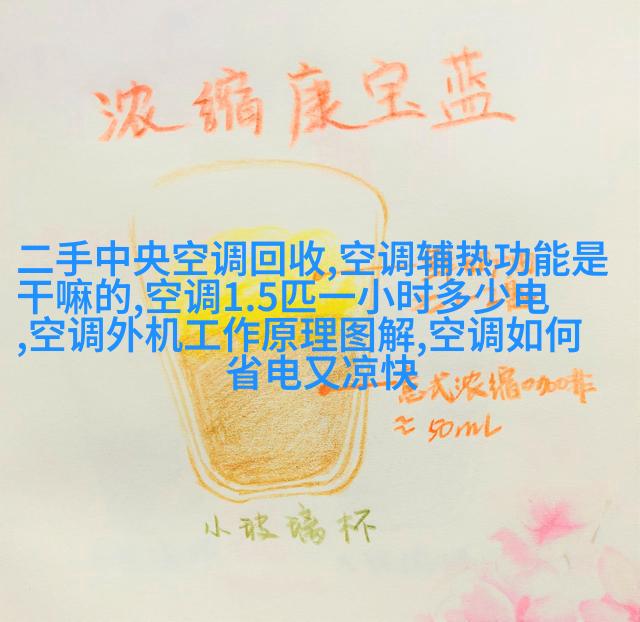 浓缩康宝蓝
二手中央空调回收,空调辅热功能是
干嘛的,空调1.5匹一小时多少电
,空调外机工作原理图解,空调如何
省电又凉快
意式浓缩咖啡
≈ 50mL
小玻璃杯